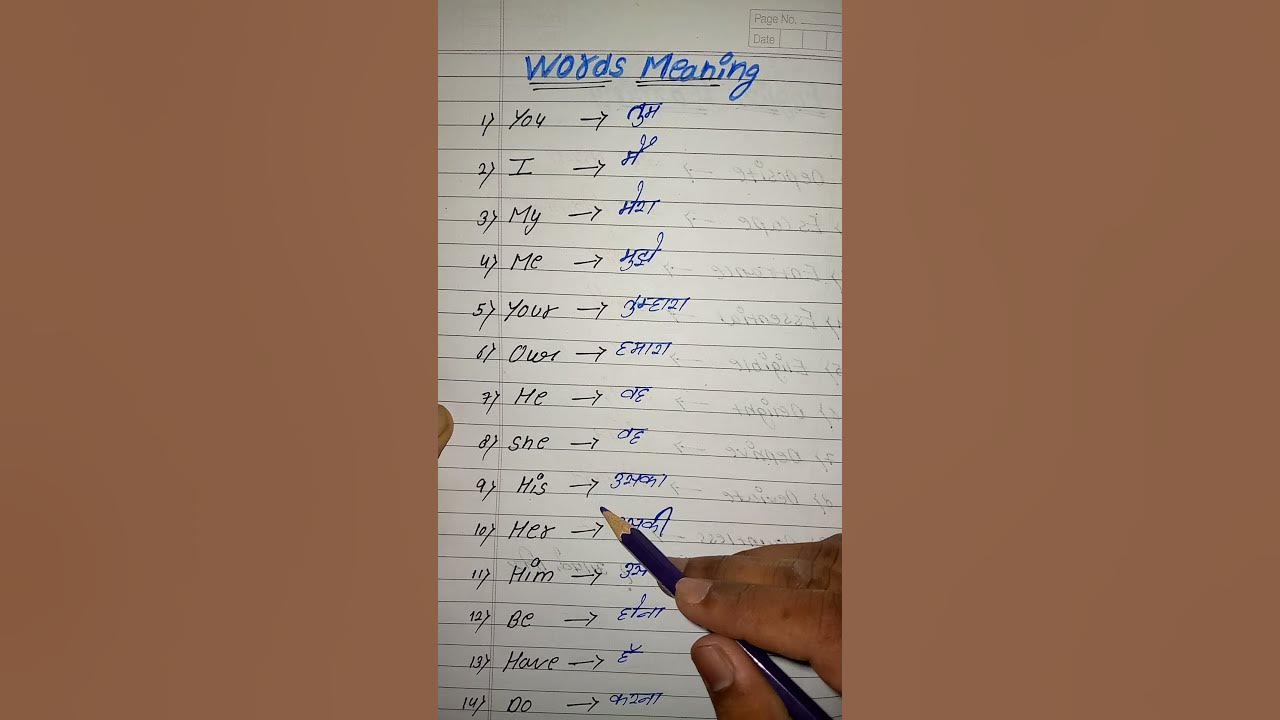 Page No.
Date
Words Meaning
1) You → तुम
2) I → मैं
3) My → मेरा
4) Me → मुझे
5) Your → तुम्हारा
6) Our → हमारा
7) He → वह
8) She → वह
9) His → उसका
10) Her →
11) Him →
12) Be → होना
13) Have → है
14) Do → करना